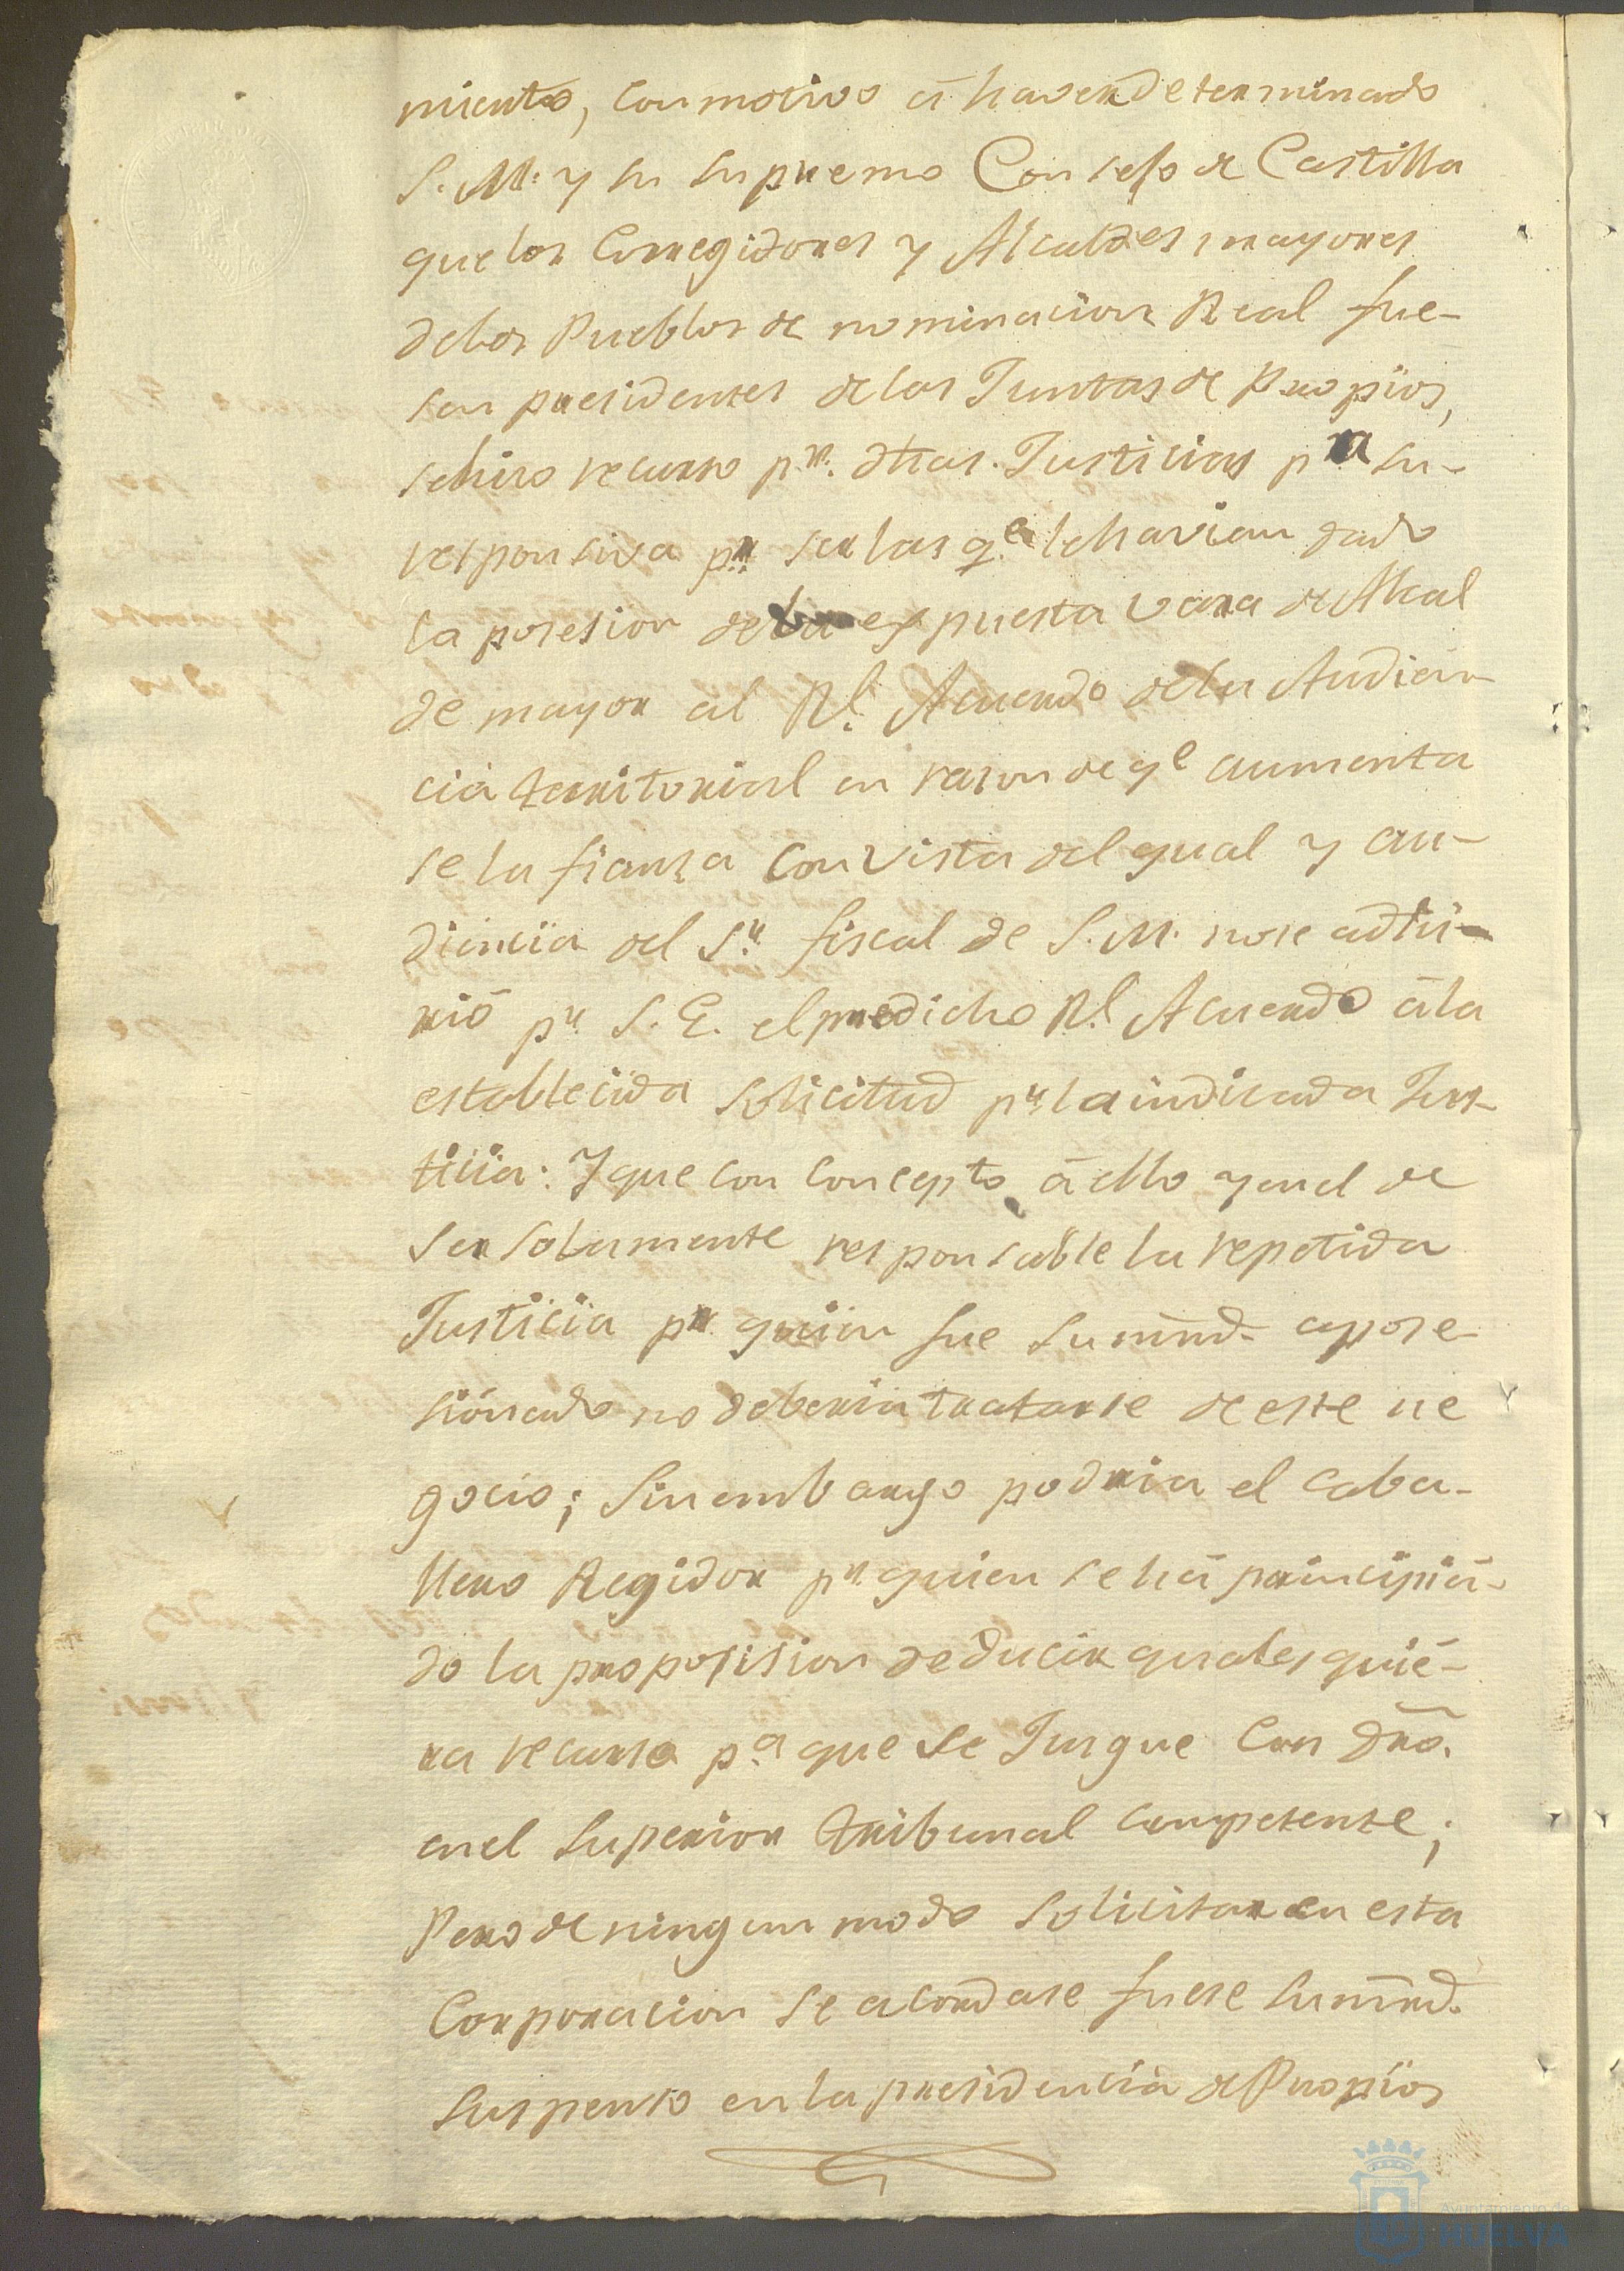 miento, con motivo á haver determinado
S. M. y su supremo Consejo de Castilla
que los Corregidores y Alcaldes mayores
delos Pueblos de nominacion Real fue-
sen presidentes delas Juntas de Propios,
sehizo recurso pr. dhas. Justicias pra su-
responsiva pr. ser las qe. lehavian dado
la posesion dela expuesta vara de Alcal
de mayor al Rl. Acuerdo dela Audien-
cia territorial en razon de qe aumenta
se la fianza con vista del qual y au-
diencia del Sr. fiscal de S. M. nose adhi-
rió pr. S. E. el predicho Rl. Acuerdo á la
establecida solicitud pr. la indicada Jus-
ticia: Y que con concepto á ello y en el de
ser solamente responsable la repetida
Justicia pr. quien fue su mrd. apose-
sionado no deberia tratarse de este ne
gocio; sin embargo podria el caba-
llero Regidor pr. quien se há principiá-
do la proposision deducir qualesquie-
ra recurso pa. que se Jusgue con dro.
enel superior tribunal competente;
Pero de ningun modo solicitar en esta
Corporacion se acordase fuese su mrd.
suspenso en la presidencia de Propios
Ayuntamiento de
HUELVA